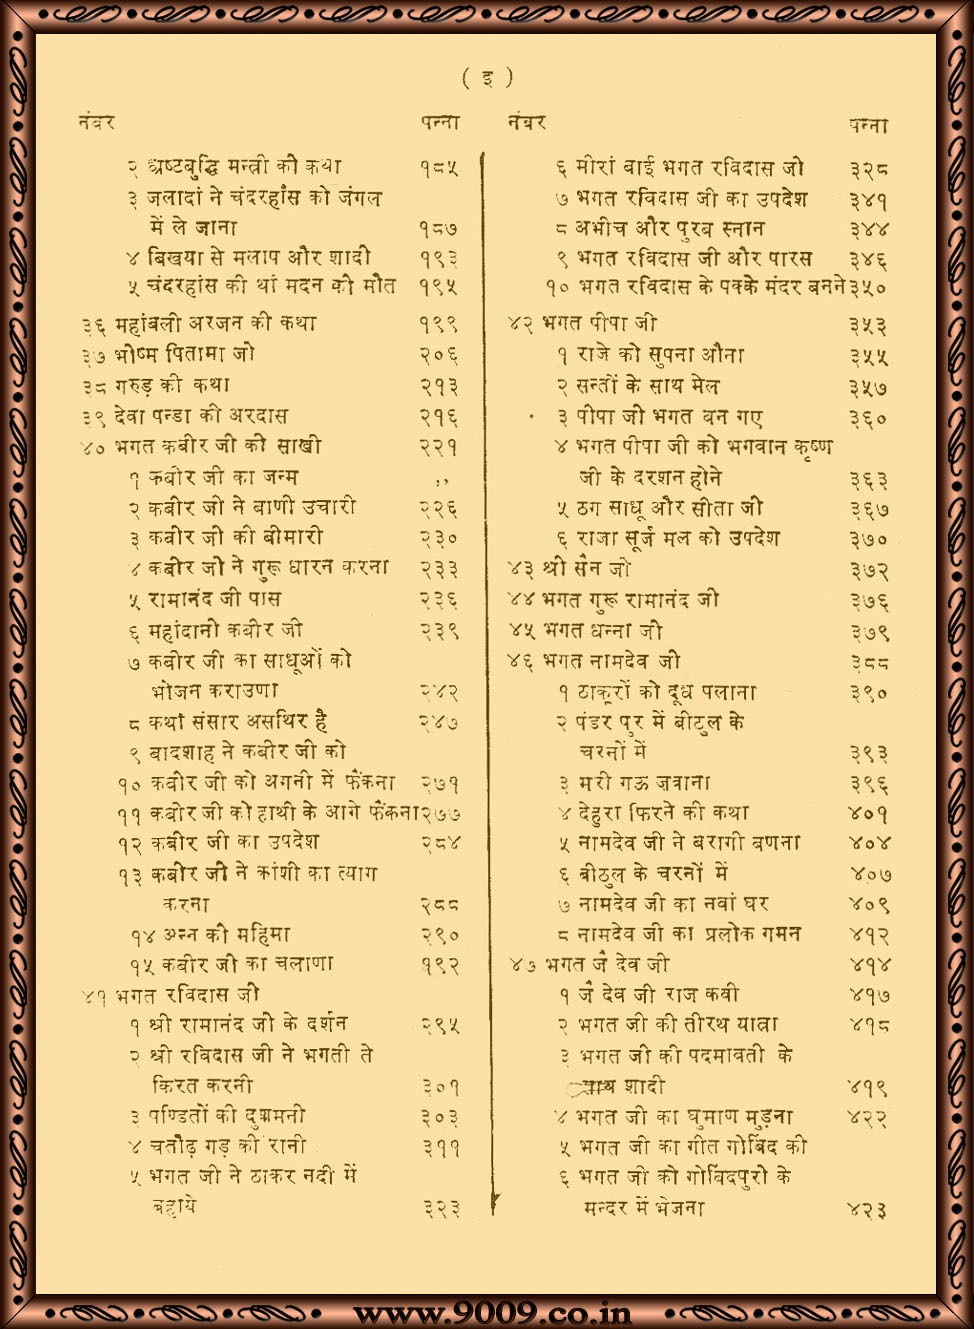 ( इ )
नंबर पन्ना
२ भ्रष्टबुद्धि मन्त्री की कथा १८५
३ जलादां ने चंदरहांस को जंगल
में ले जाना १८७
४ बिखया से मलाप और शादी १९३
५ चंदरहांस की थां मदन की मौत १९५
३६ महांबली अरजन की कथा १९९
३७ भीष्म पितामा जी २०६
३८ गरुड़ की कथा २१३
३९ देवा पन्डा की अरदास २१६
४० भगत कबीर जी की साखी २२१
१ कबीर जी का जन्म ,,
२ कबीर जी ने बाणी उचारी २२६
३ कबीर जी की बीमारी २३०
४ कबीर जी ने गुरू धारन करना २३३
५ रामानंद जी पास २३६
६ महांदानी कबीर जी २३९
७ कबीर जी का साधूओं को
भोजन कराउणा २४२
८ कथा संसार असथिर है २४७
९ बादशाह ने कबीर जी को
१० कबीर जी को अगनी में फैंकना २७१
११ कबीर जी को हाथी के आगे फैंकना २७७
१२ कबीर जी का उपदेश २८४
१३ कबीर जी ने कांशी का त्याग
करना २८८
१४ अन्न की महिमा २९०
१५ कबीर जी का चलाणा १९२
४१ भगत रविदास जी
१ श्री रामानंद जी के दर्शन २९५
२ श्री रविदास जी ने भगती ते
किरत करनी ३०१
३ पण्डितों की दुशमनी ३०३
४ चतौढ़ गड़ की रानी ३११
५ भगत जी ने ठाकर नदी में
बहाये ३२३
नंबर पन्ना
६ मीरां बाई भगत रविदास जी ३२८
७ भगत रविदास जी का उपदेश ३४१
८ अभीच और पुरब स्नान ३४४
९ भगत रविदास जी और पारस ३४६
१० भगत रविदास के पक्के मंदर बनने ३५०
४२ भगत पीपा जी ३५३
१ राजे को सुपना औना ३५५
२ सन्तों के साथ मेल ३५७
३ पीपा जी भगत बन गए ३६०
४ भगत पीपा जी को भगवान कृष्ण
जी के दरशन होने ३६३
५ ठग साधू और सीता जी ३६७
६ राजा सूर्ज मल को उपदेश ३७०
४३ श्री सैन जी ३७२
४४ भगत गुरू रामानंद जी ३७६
४५ भगत धन्ना जी ३७९
४६ भगत नामदेव जी ३८८
१ ठाकुरों को दूध पलाना ३९०
२ पंडर पुर में बीठुल के
चरनों में ३९३
३ मरी गऊ जवाना ३९६
४ देहुरा फिरने की कथा ४०१
५ नामदेव जी ने बरागी बणना ४०४
६ बीठुल के चरनों में ४०७
७ नामदेव जी का नवां घर ४०९
८ नामदेव जी का प्रलोक गमन ४१२
४७ भगत जै देव जी ४१४
१ जै देव जी राज कवी ४१७
२ भगत जी की तीरथ यात्रा ४१८
३ भगत जी की पदमावती के
साथ शादी ४१९
४ भगत जी का घुमाण मुड़ना ४२२
५ भगत जी का गीत गोबिंद की
६ भगत जी को गोबिंदपुरी के
मन्दर में भेजना ४२३
www.9009.co.in